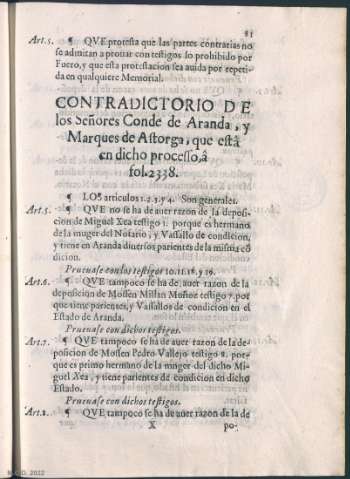 81
Art.5. ¶ QVE protesta que las partes contrarias no
se admitan a prouar con testigos lo prohibido por
Fuero, y que esta protestacion sea auida por repeti-
da en qualquiere Memorial.
CONTRADICTORIO DE
los Señores Conde de Aranda, y
Marques de Astorga, que està
en dicho processo, â
fol.2338.
¶ LOS articulos 1.2.3.y 4. Son generales.
Art.5. ¶ QVE no se ha de auer razon de la deposi-
cion de Miguel Xea testigo 1. porque es hermano
de la muger del Notario; y Vassallo de condicion,
y tiene en Aranda diuersos parientes de la misma cō
dicion.
Prueuase con los testigos 10.11.18. y 19.
Art.6. ¶ QVE tampoco se ha de auer razon de la
deposicion de Mossen Millan Muñoz testigo 7. por
que tiene parientes, y Vassallos de condicion en el
Estado de Aranda.
Prueuase con dichos testigos.
Art.7. ¶ QVE tampoco se ha de auer razon de la de-
posicion de Mossen Pedro Vallejo testigo 8. por-
que es primo hermano de la muger del dicho Mi-
guel Xea, y tiene parientes de condicion en dicho
Estado.
Prueuase con dichos testigos.
Art.8. ¶ QVE tampoco se ha de auer razon de la de
X po-
2022